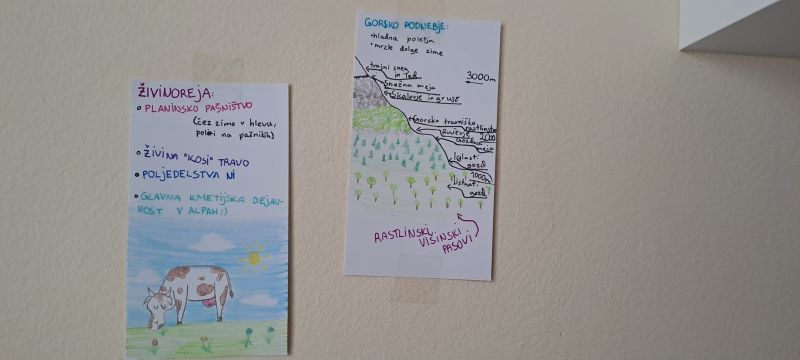 ŽIVINOREJA:
• PLANINSKO PAŠNIŠTVO
(čez zimo v hlevu,
poleti na pašnikih)
• ŽIVINA "KOSI" TRAVO
• POLJEDELSTVA NI
• GLAVNA KMETIJSKA DEJAV-
NOST V ALPAH:)
GORSKO PODNEBJE:
• hladna poletja
• mrzle dolge zime
trajni sneg
in led
3000m
Snežna meja
Skalovje in grušč
Gorsko travniško
rastlinstvo
Ruševje
2000
Gozdna
meja
Iglasti
gozd
1000m
listnati
gozd
RASTLINSKI
VIŠINSKI
PASOVI